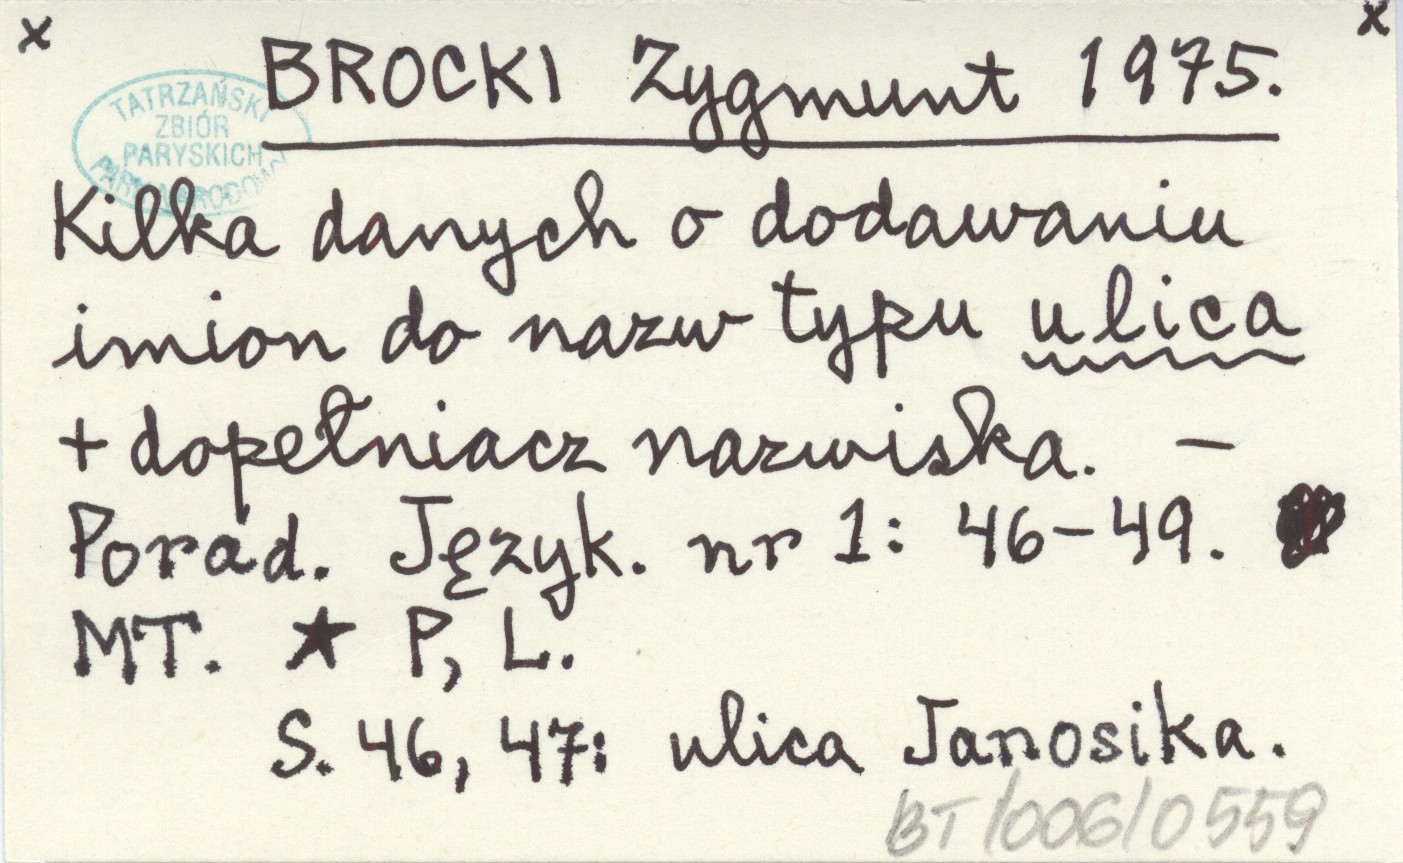 x x
BROCKI Zygmunt 1975.
TATRZAŃSKI
ZBIÓR
PARYSKICH
Kilka danych o dodawaniu
imion do nazw typu ulica
+ dopełniacz nazwiska. —
Porad. Język. nr 1: 46-49.
MT. ★ P, L.
S. 46, 47: ulica Janosika.
BT/006/0559